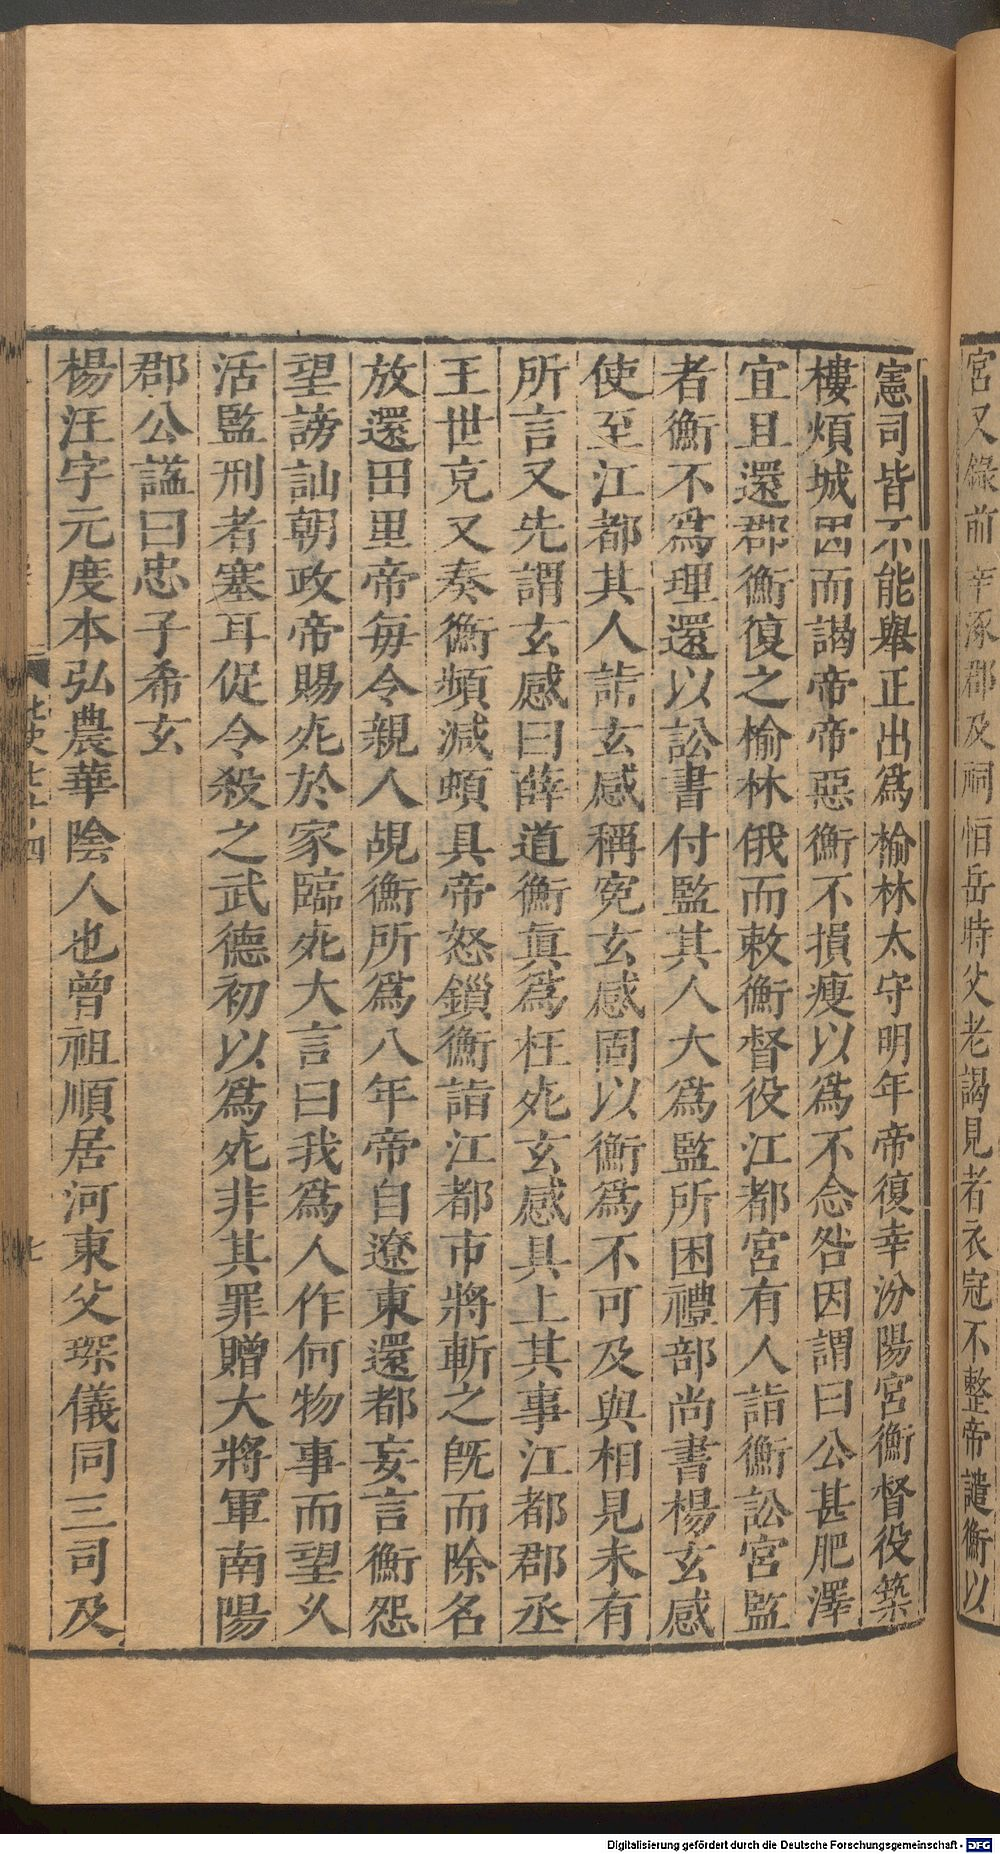 宮又錄前幸涿郡及祠恒岳時父老謁見者衣冠不整帝譴衡以
憲司皆不能舉正出為榆林太守明年帝復幸汾陽宮衡督役築
樓煩城因而謁帝帝惡衡不損瘦以為不念咎因謂曰公甚肥澤
宜且還郡衡復之榆林俄而敕衡督役江都宮有人詣衡訟宮監
者衡不為理還以訟書付監其人大為監所困禮部尚書楊玄感
使至江都其人詣玄感稱冤玄感固以衡為不可及與相見未有
所言又先謂玄感曰薛道衡眞為枉死玄感具上其事江都郡丞
王世充又奏衡頻減頓具帝怒鎖衡詣江都市將斬之旣而除名
放還田里帝每令親人覘衡所為八年帝自遼東還都妾言衡怨
望謗訕朝政帝賜死於家臨死大言曰我為人作何物事而望久
活監刑者塞耳促令殺之武德初以為死非其罪贈大將軍南陽
郡公謚曰忠子希玄
楊汪字元度本弘農華陰人也曾祖順居河東父琛儀同三司及
北史七十四
七
Digitalisierung gefördert durch die Deutsche Forschungsgemeinschaft - DFG